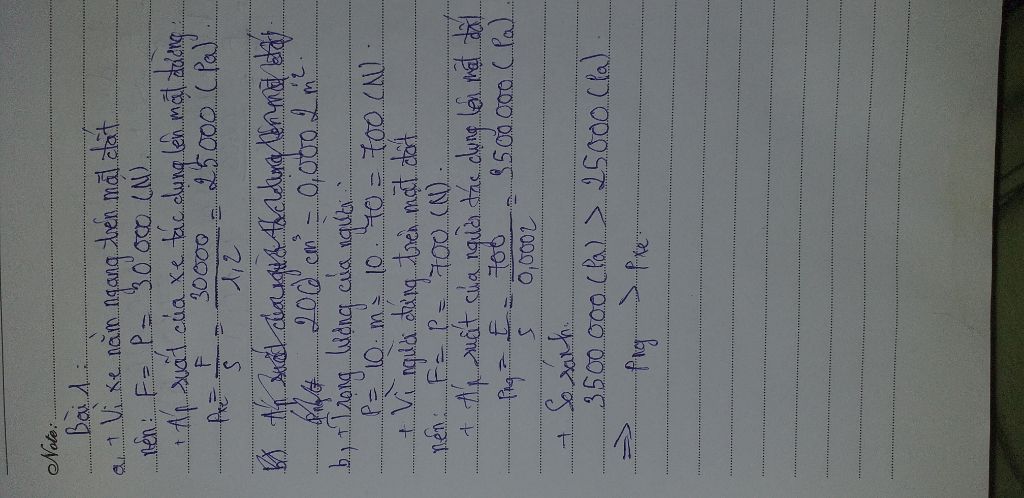 Note:
Bài 1:
a, + Vì xe nằm ngang trên mặt đất
nên: F = P = 30 000 (N).
+ Áp suất của xe tác dụng lên mặt đường
Pxe = F/S = 30000/1,2 = 25000 (Pa)
Áp suất của người tác dụng lên mặt đất
200 cm³ = 0,0002 m².
b, + Trọng lượng của người:
P = 10. m = 10. 70 = 700 (N).
+ Vì người đứng trên mặt đất
nên: F = P = 700 (N)
+ Áp suất của người tác dụng lên mặt đất
Png = F/S = 700/0,0002 = 3500.000 (Pa)
+ So sánh.
3500 000 (Pa) > 25000 (Pa)
=> Png > Pxe.